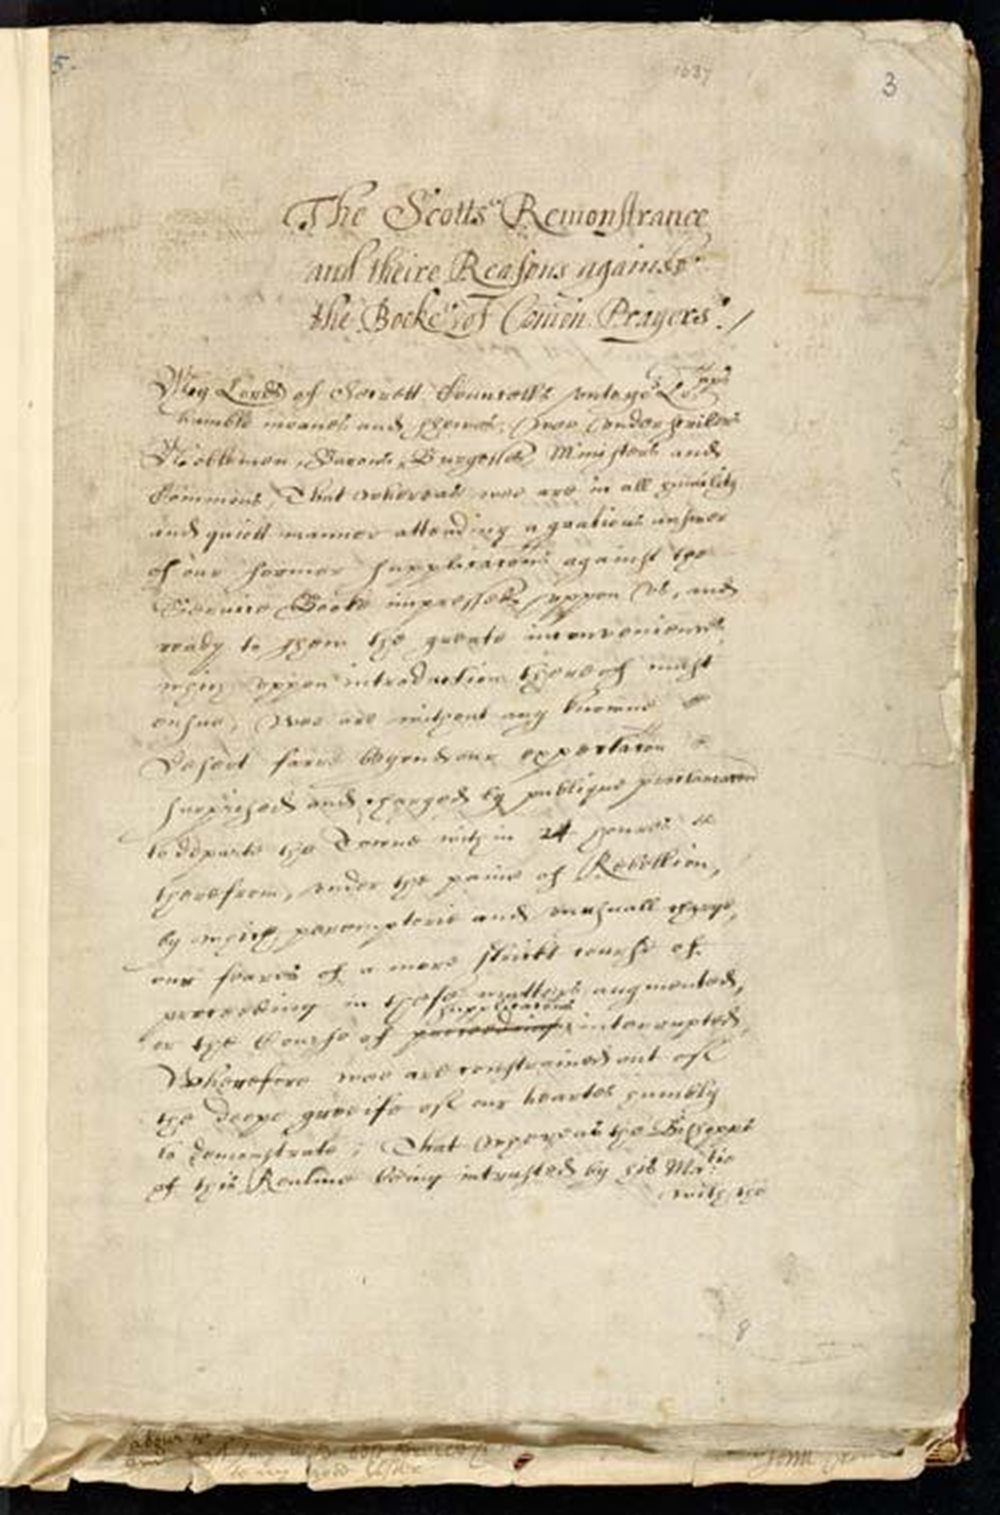 5.
1637
3
The Scotts Remonstrance
and theire Reasons against
the Booke of Com̃on Prayers./
My Lords of Secrett Counsell, unto yor Lopps
humble meanes and shewes, Wee undersscribers
Noblemen, Barons, Burgesses, Ministers and
Commons, That whereas wee are in all humility
and quiett manner attending a gratious answer
of our former supplicacons against the
Service Booke impressed uppon us, and
ready to shew the greate inconveniences
which uppon introduction thereof must
ensue, Wee are without any knowne
Desert farre beyond our expectacon
surprised and charged by publique proclamacon
to departe the Towne within 24 houres
therefrom, under the paine of Rebellion,
by which peremptorie and unusuall charge,
our feares of a more strickt course of
proceeding in these matters augmented,
supplicacons
or the Course of proceedings interrupted,
Wherefore wee are constrained out of
the deepe greeife of our heartes humbly
to remonstrate; That whereas the Bishopps
of this Realme being intrusted by his Matie
with the
8